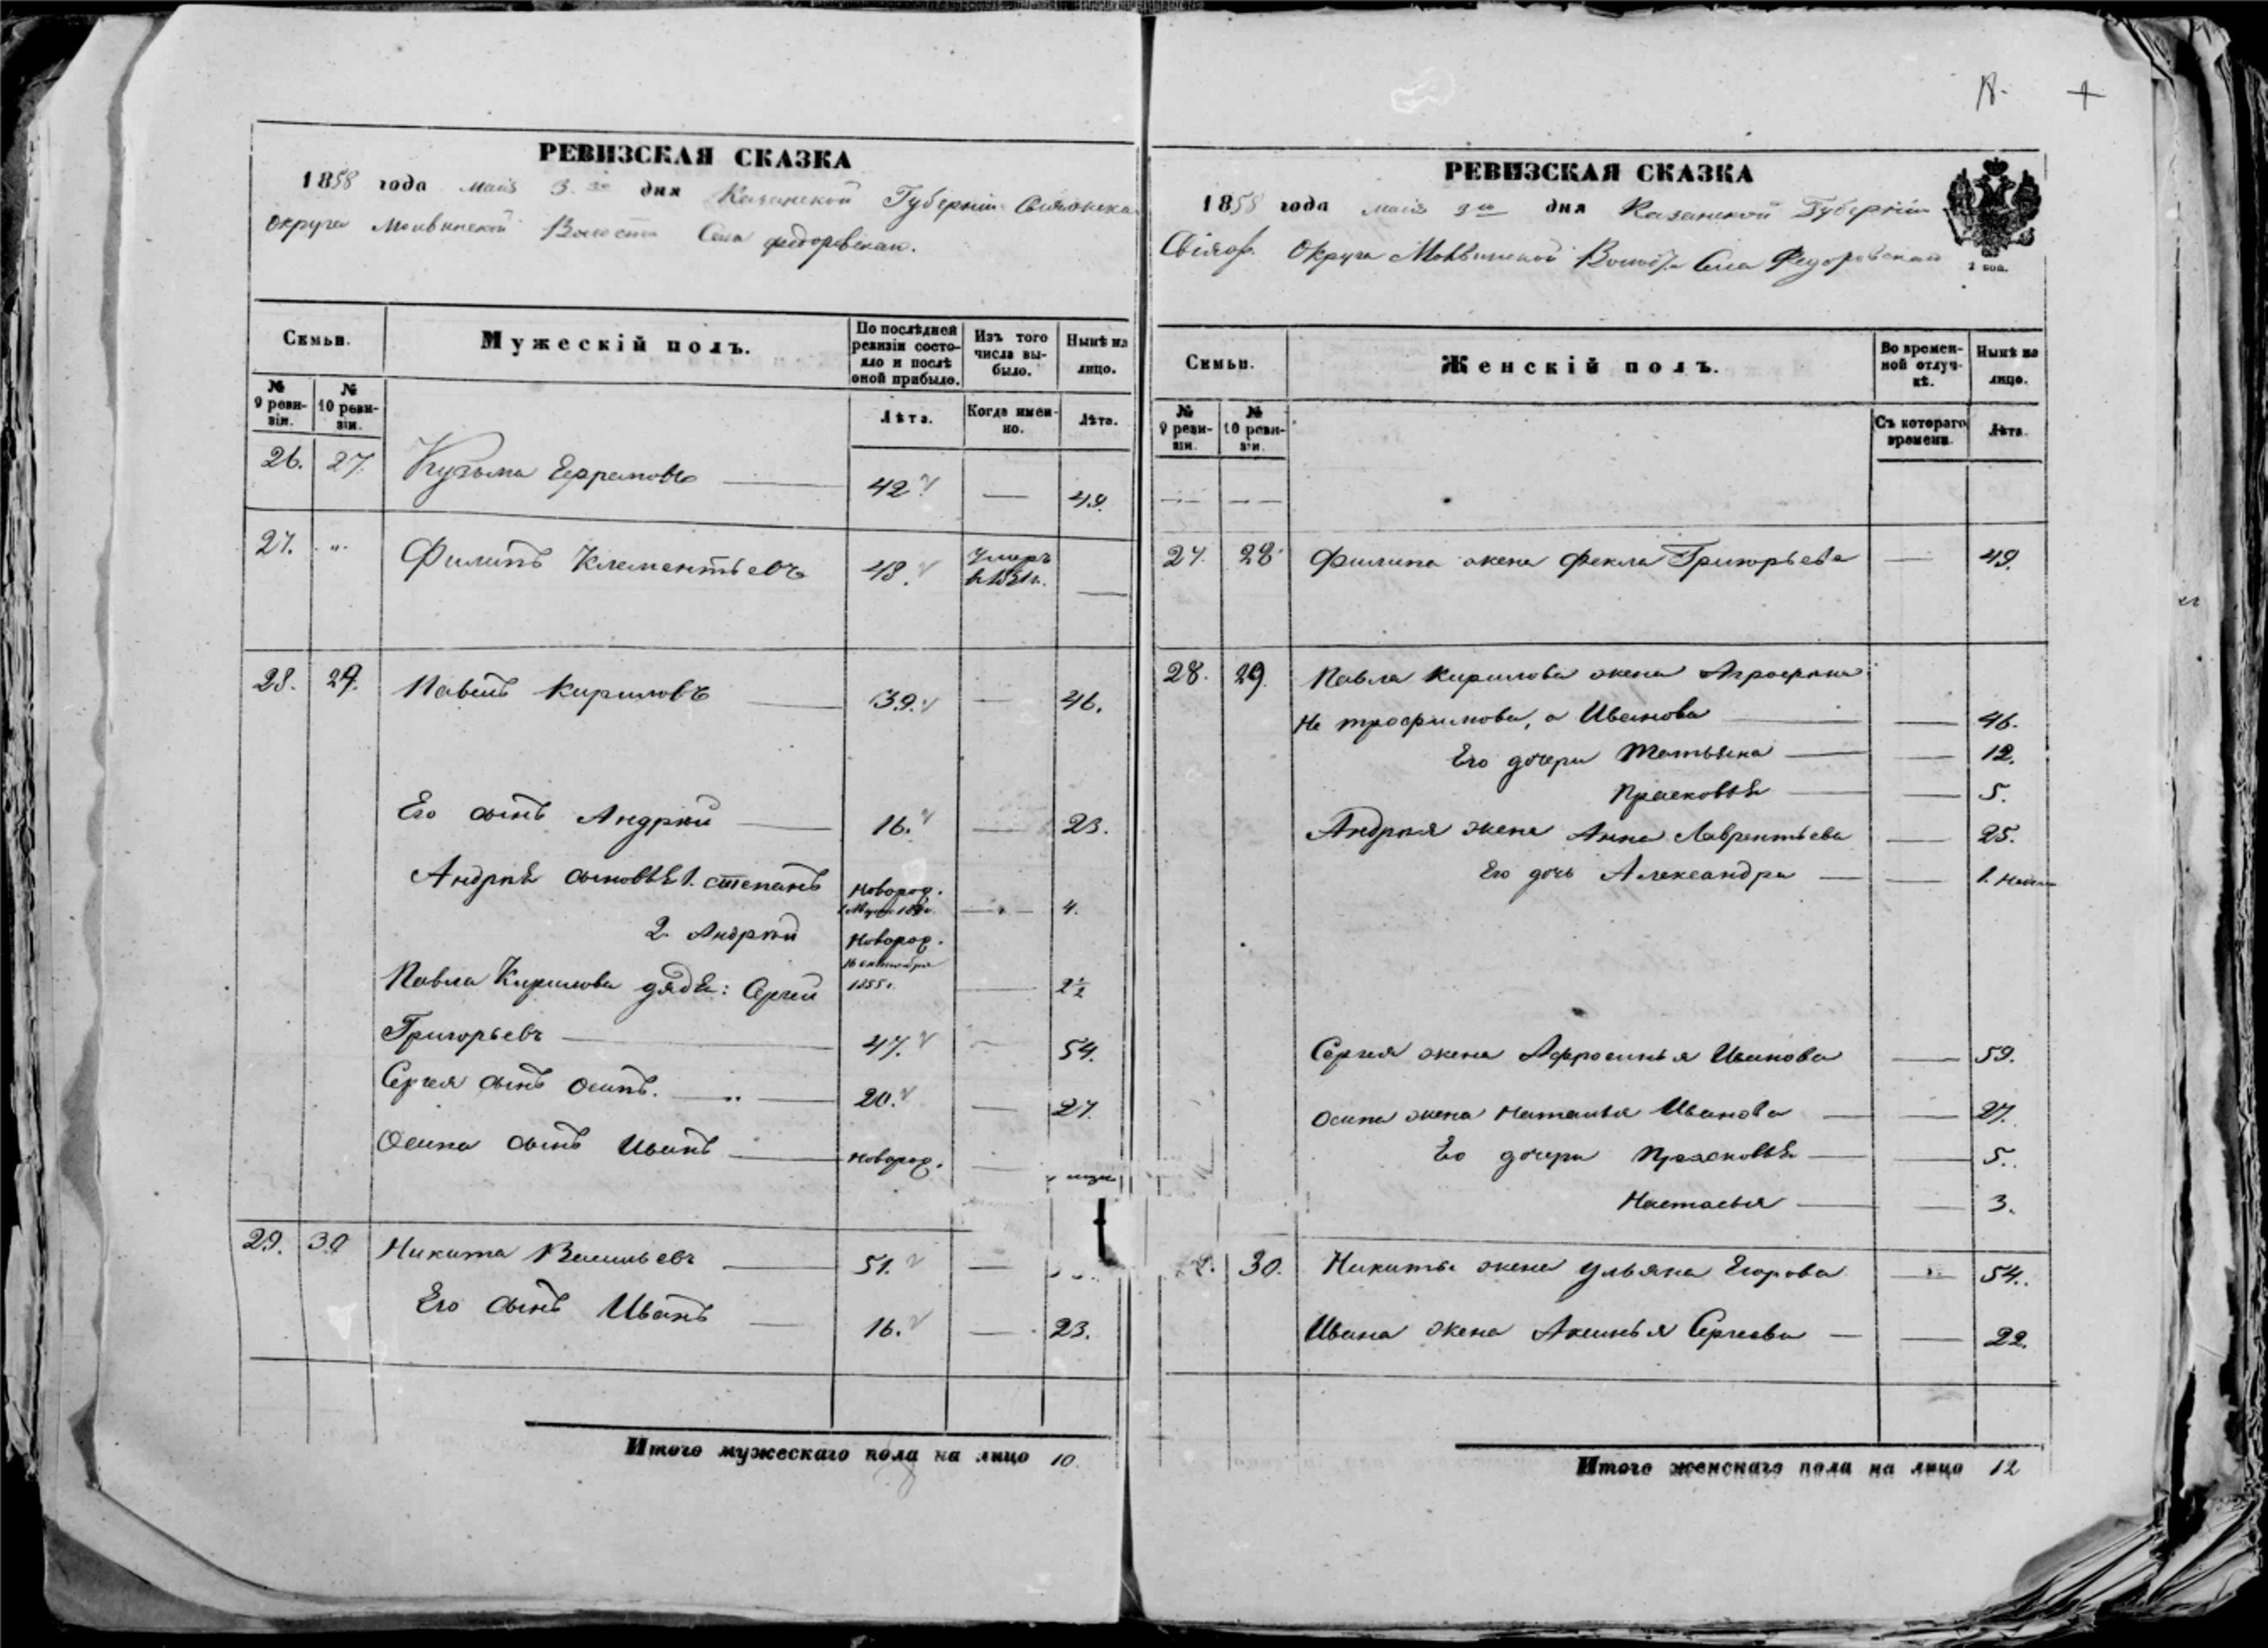 РЕВИЗСКАЯ СКАЗКА
1858 года маія 3го дня Казанской Губерніи Свіяжска
округа Волости Села Федоровскаго.
Семьи.
Мужескій полъ.
По послѣдней ревизіи состояло и послѣ оной прибыло.
Изъ того числа выбыло.
Нынѣ на лицо.
№ 9 ревизіи.
№ 10 ревизіи.
Лѣта.
Когда именно.
Лѣта.
26. 27. Кузьма Ефремовъ 42 — 49.
27. " Филипъ Клементьевъ 48. Умеръ
въ 1851г. —
28. 29. Павелъ Кириловъ 39. — 46.
Его сынъ Андрей 16. — 23.
Андрея сыновья 1. Степанъ Новорож. — 4.
2. Андрей Новорож.
16 октября
Павла Кирилова дядя: Сергей 1855г. — 2½
Григорьевъ 47. — 54.
Сергея сынъ Осипъ. 20. — 27.
Осипа сынъ Иванъ Новорож. —
29. 30 Никита Васильевъ 51. —
Его сынъ Иванъ 16. — 23.
Итого мужескаго пола на лицо 10
РЕВИЗСКАЯ СКАЗКА
1858 года маія 3го дня Казанской Губерніи
Свіяж. Округа Села Федоровскаго
Семьи.
Женскій полъ.
Во временной отлучкѣ.
Нынѣ на лицо.
№ 9 ревизіи.
№ 10 ревизіи.
Съ котораго времени.
Лѣта.
— —
27. 28 Филипа жена Фекла Григорьева — 49.
28. 29. Павла Кирилова жена Аграфена
Не Трофимова, а Иванова — 46.
Его дочери Татьяна — 12.
Прасковья — 5.
Андрея жена Анна Лаврентьева — 25.
Его дочь Александра — 1.
Сергея жена Афросинья Иванова — 59.
Осипа жена Наталья Иванова — 27.
Его дочери Прасковья — 5.
Настасья — 3.
30. Никиты жена Ульяна Егорова — 54.
Ивана жена Аксинья Сергеева — 22.
Итого женскаго пола на лицо 12